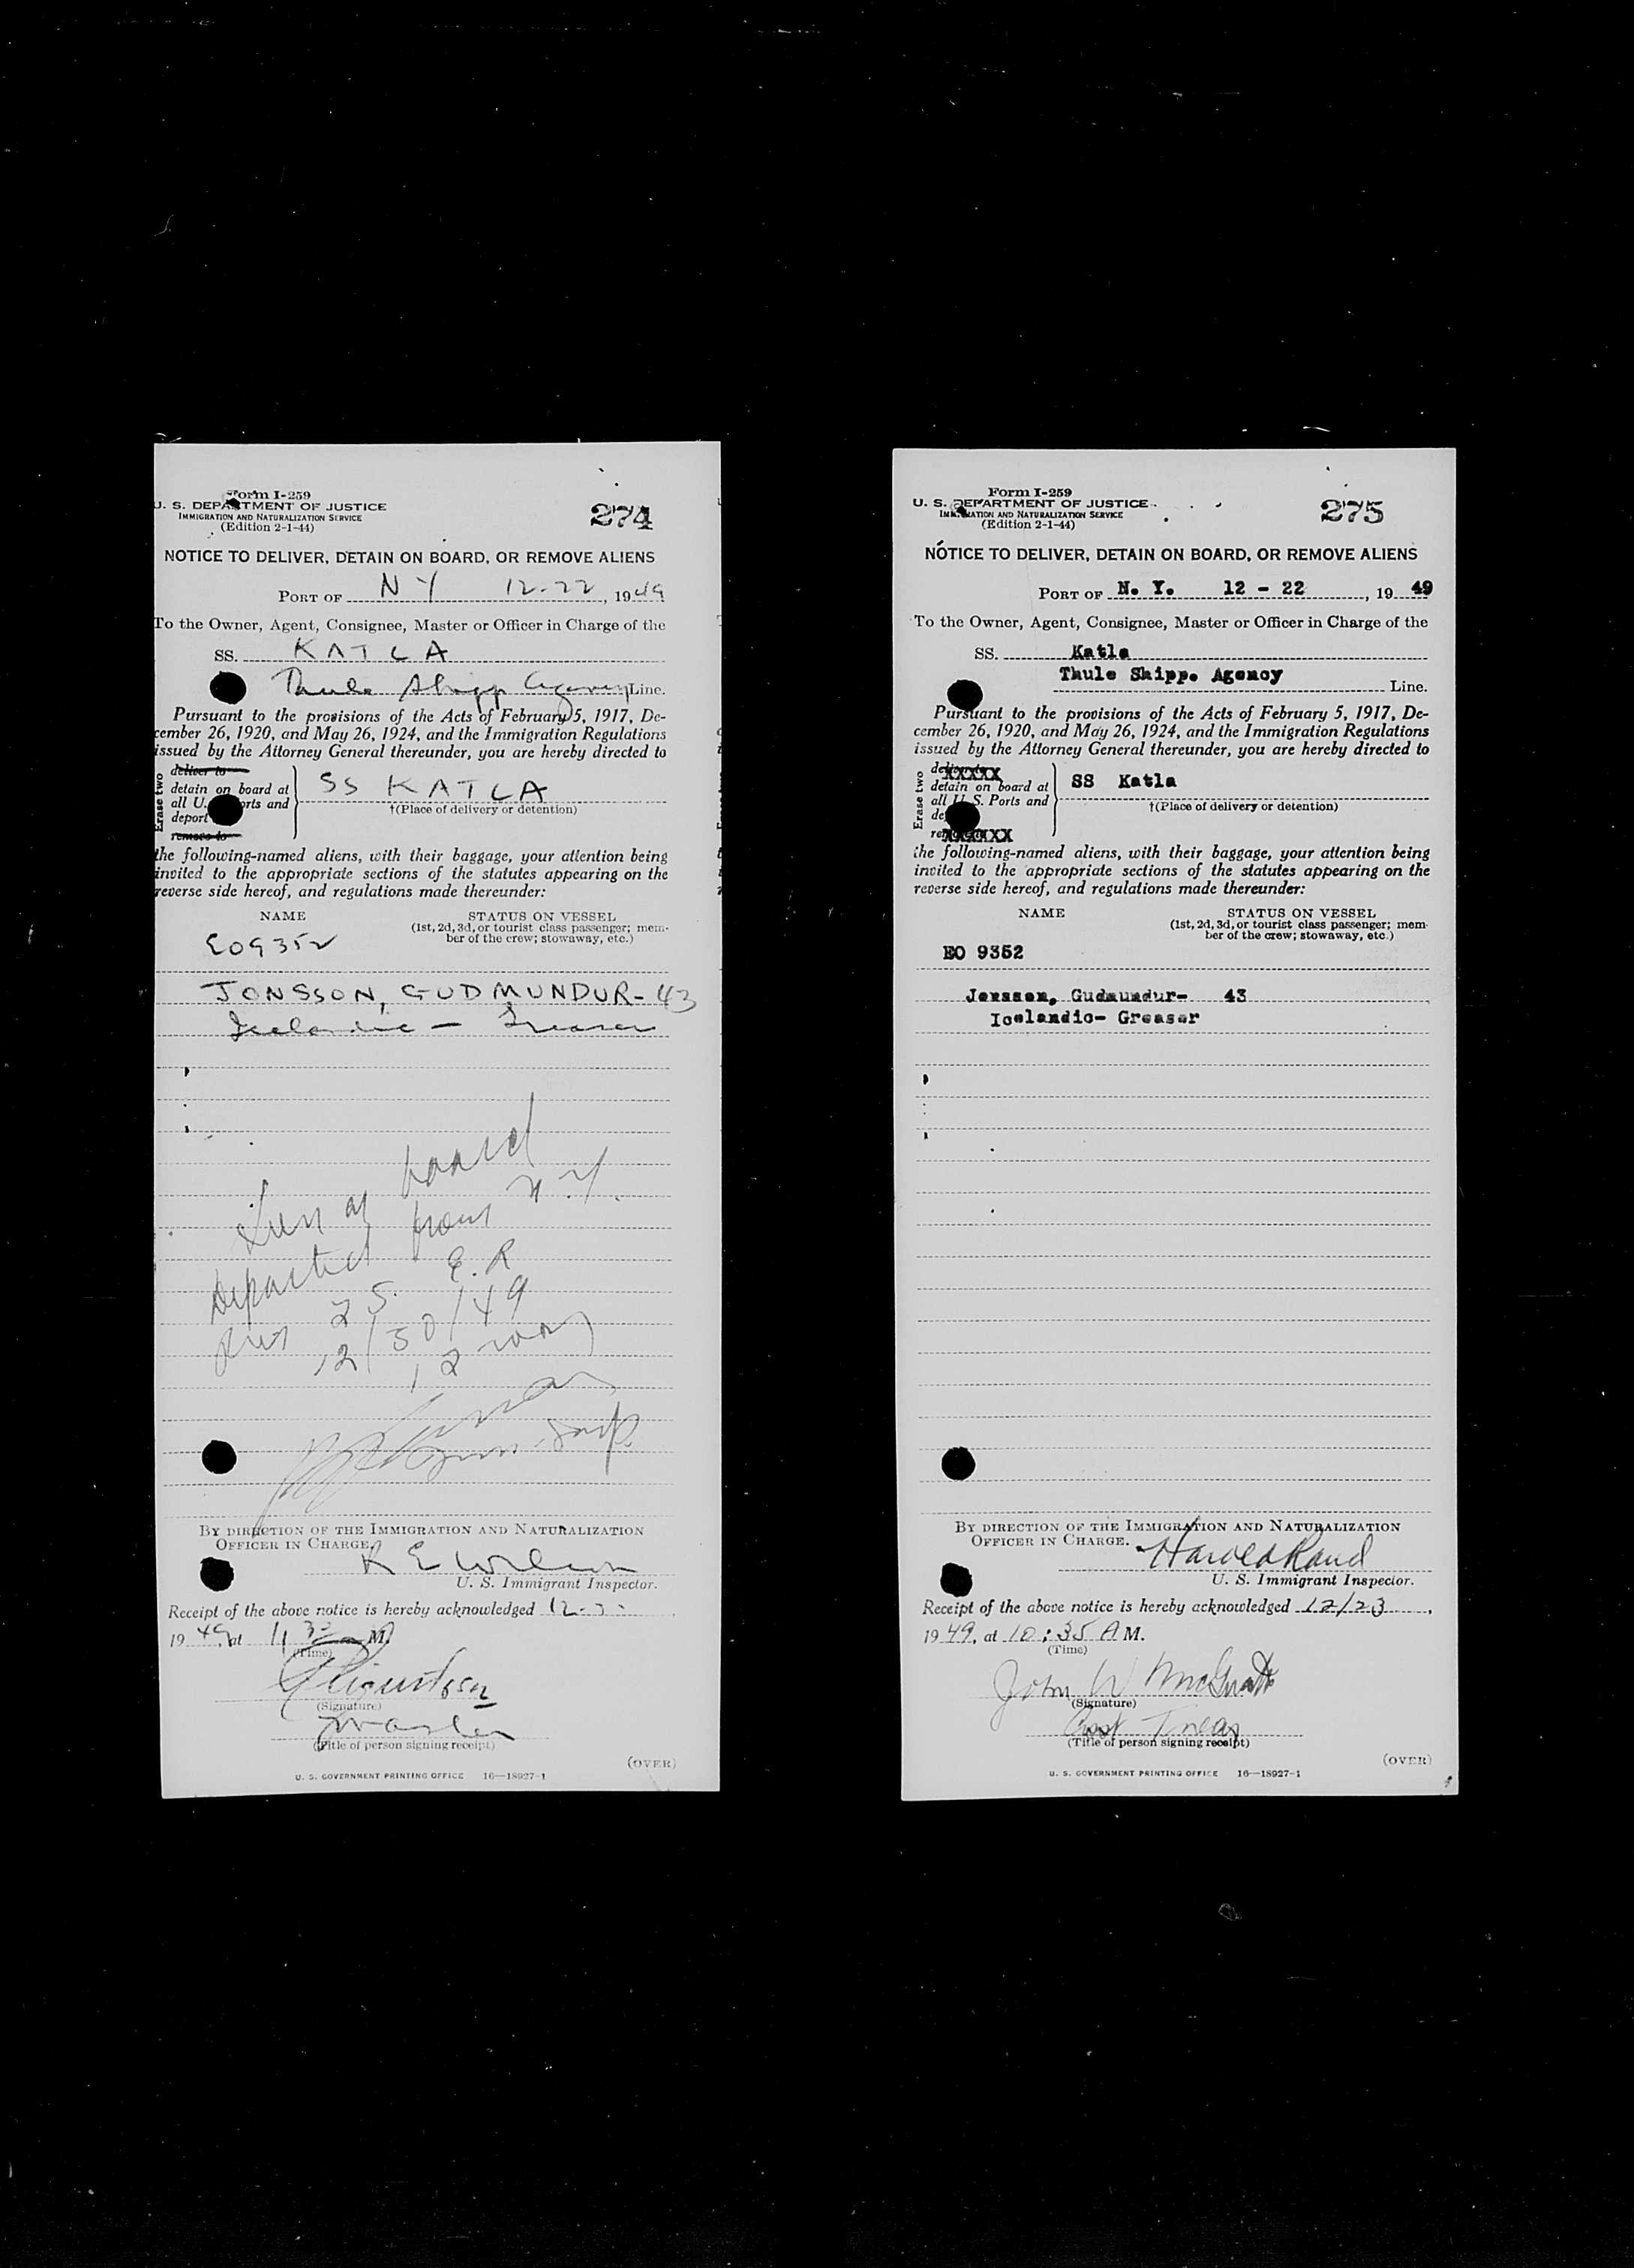 Form I-259
U. S. DEPARTMENT OF JUSTICE
IMMIGRATION AND NATURALIZATION SERVICE
(Edition 2-1-44)
274
NOTICE TO DELIVER, DETAIN ON BOARD, OR REMOVE ALIENS
PORT OF N Y 12-22, 1949
To the Owner, Agent, Consignee, Master or Officer in Charge of the
SS. KATLA
Thule Shipp Agency Line.
Pursuant to the provisions of the Acts of February 5, 1917, De-
cember 26, 1920, and May 26, 1924, and the Immigration Regulations
issued by the Attorney General thereunder, you are hereby directed to
Erase two
deliver to
detain on board at
all U. orts and
deport
remove to
SS KATLA
†(Place of delivery or detention)
the following-named aliens, with their baggage, your attention being
invited to the appropriate sections of the statutes appearing on the
reverse side hereof, and regulations made thereunder:
NAME
STATUS ON VESSEL
(1st, 2d, 3d, or tourist class passenger; mem-
ber of the crew; stowaway, etc.)
EO9352
JONSSON, GUDMUNDUR-43
Icelandic - Greaser
board
from N.Y.
Departed
Pier 25. E.R
12/30/49
12
Insp.
BY DIRECTION OF THE IMMIGRATION AND NATURALIZATION
OFFICER IN CHARGE.
R E Wilson
U. S. Immigrant Inspector.
Receipt of the above notice is hereby acknowledged 12-
1949, at 11 30 M.
(Time)
(Signature)
Master
(Title of person signing receipt)
(OVER)
U. S. GOVERNMENT PRINTING OFFICE 16—18927-1
Form I-259
U. S. DEPARTMENT OF JUSTICE
IMMIGRATION AND NATURALIZATION SERVICE
(Edition 2-1-44)
275
NOTICE TO DELIVER, DETAIN ON BOARD, OR REMOVE ALIENS
PORT OF N. Y. 12 - 22, 19 49
To the Owner, Agent, Consignee, Master or Officer in Charge of the
SS. Katla
Thule Shipp. Agency
Line.
Pursuant to the provisions of the Acts of February 5, 1917, De-
cember 26, 1920, and May 26, 1924, and the Immigration Regulations
issued by the Attorney General thereunder, you are hereby directed to
Erase two
detain on board at
all U. S. Ports and
SS Katla
†(Place of delivery or detention)
the following-named aliens, with their baggage, your attention being
invited to the appropriate sections of the statutes appearing on the
reverse side hereof, and regulations made thereunder:
NAME
STATUS ON VESSEL
(1st, 2d, 3d, or tourist class passenger; mem-
ber of the crew; stowaway, etc.)
EO 9352
Jonsson, Gudmundur- 43
Icelandic- Greaser
BY DIRECTION OF THE IMMIGRATION AND NATURALIZATION
OFFICER IN CHARGE.
Harold Rand
U. S. Immigrant Inspector.
Receipt of the above notice is hereby acknowledged 12/23,
1949, at 10:35 A M.
(Time)
John W McGrath
(Signature)
Asst Treas
(Title of person signing receipt)
(OVER)
U. S. GOVERNMENT PRINTING OFFICE 16—18927-1